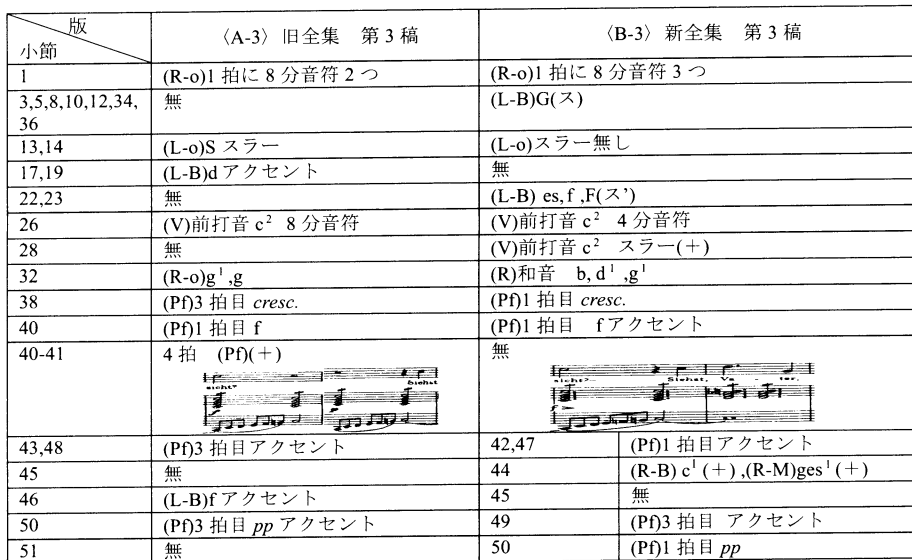 版
小節
〈A-3〉 旧全集　第 3 稿
〈B-3〉 新全集　第 3 稿
1
(R-o)1 拍に 8 分音符 2 つ
(R-o)1 拍に 8 分音符 3 つ
3,5,8,10,12,34,
36
無
(L-B)G(ス)
13,14
(L-o)S スラー
(L-o)スラー無し
17,19
(L-B)d アクセント
無
22,23
無
(L-B) es, f ,F(ス')
26
(V)前打音 c² 8 分音符
(V)前打音 c² 4 分音符
28
無
(V)前打音 c² スラー(+)
32
(R-o)g¹ ,g
(R)和音　b, d¹ ,g¹
38
(Pf)3 拍目 cresc.
(Pf)1 拍目 cresc.
40
(Pf)1 拍目 f
(Pf)1 拍目　f アクセント
40-41
4 拍　(Pf)(+)
無
sicht? Siehst
p
sicht?- Siehst, Va - ter,
f >
43,48
(Pf)3 拍目アクセント
42,47
(Pf)1 拍目アクセント
45
無
44
(R-B) c¹ (+) ,(R-M)ges¹ (+)
46
(L-B)f アクセント
45
無
50
(Pf)3 拍目 pp アクセント
49
(Pf)3 拍目 アクセント
51
無
50
(Pf)1 拍目 pp